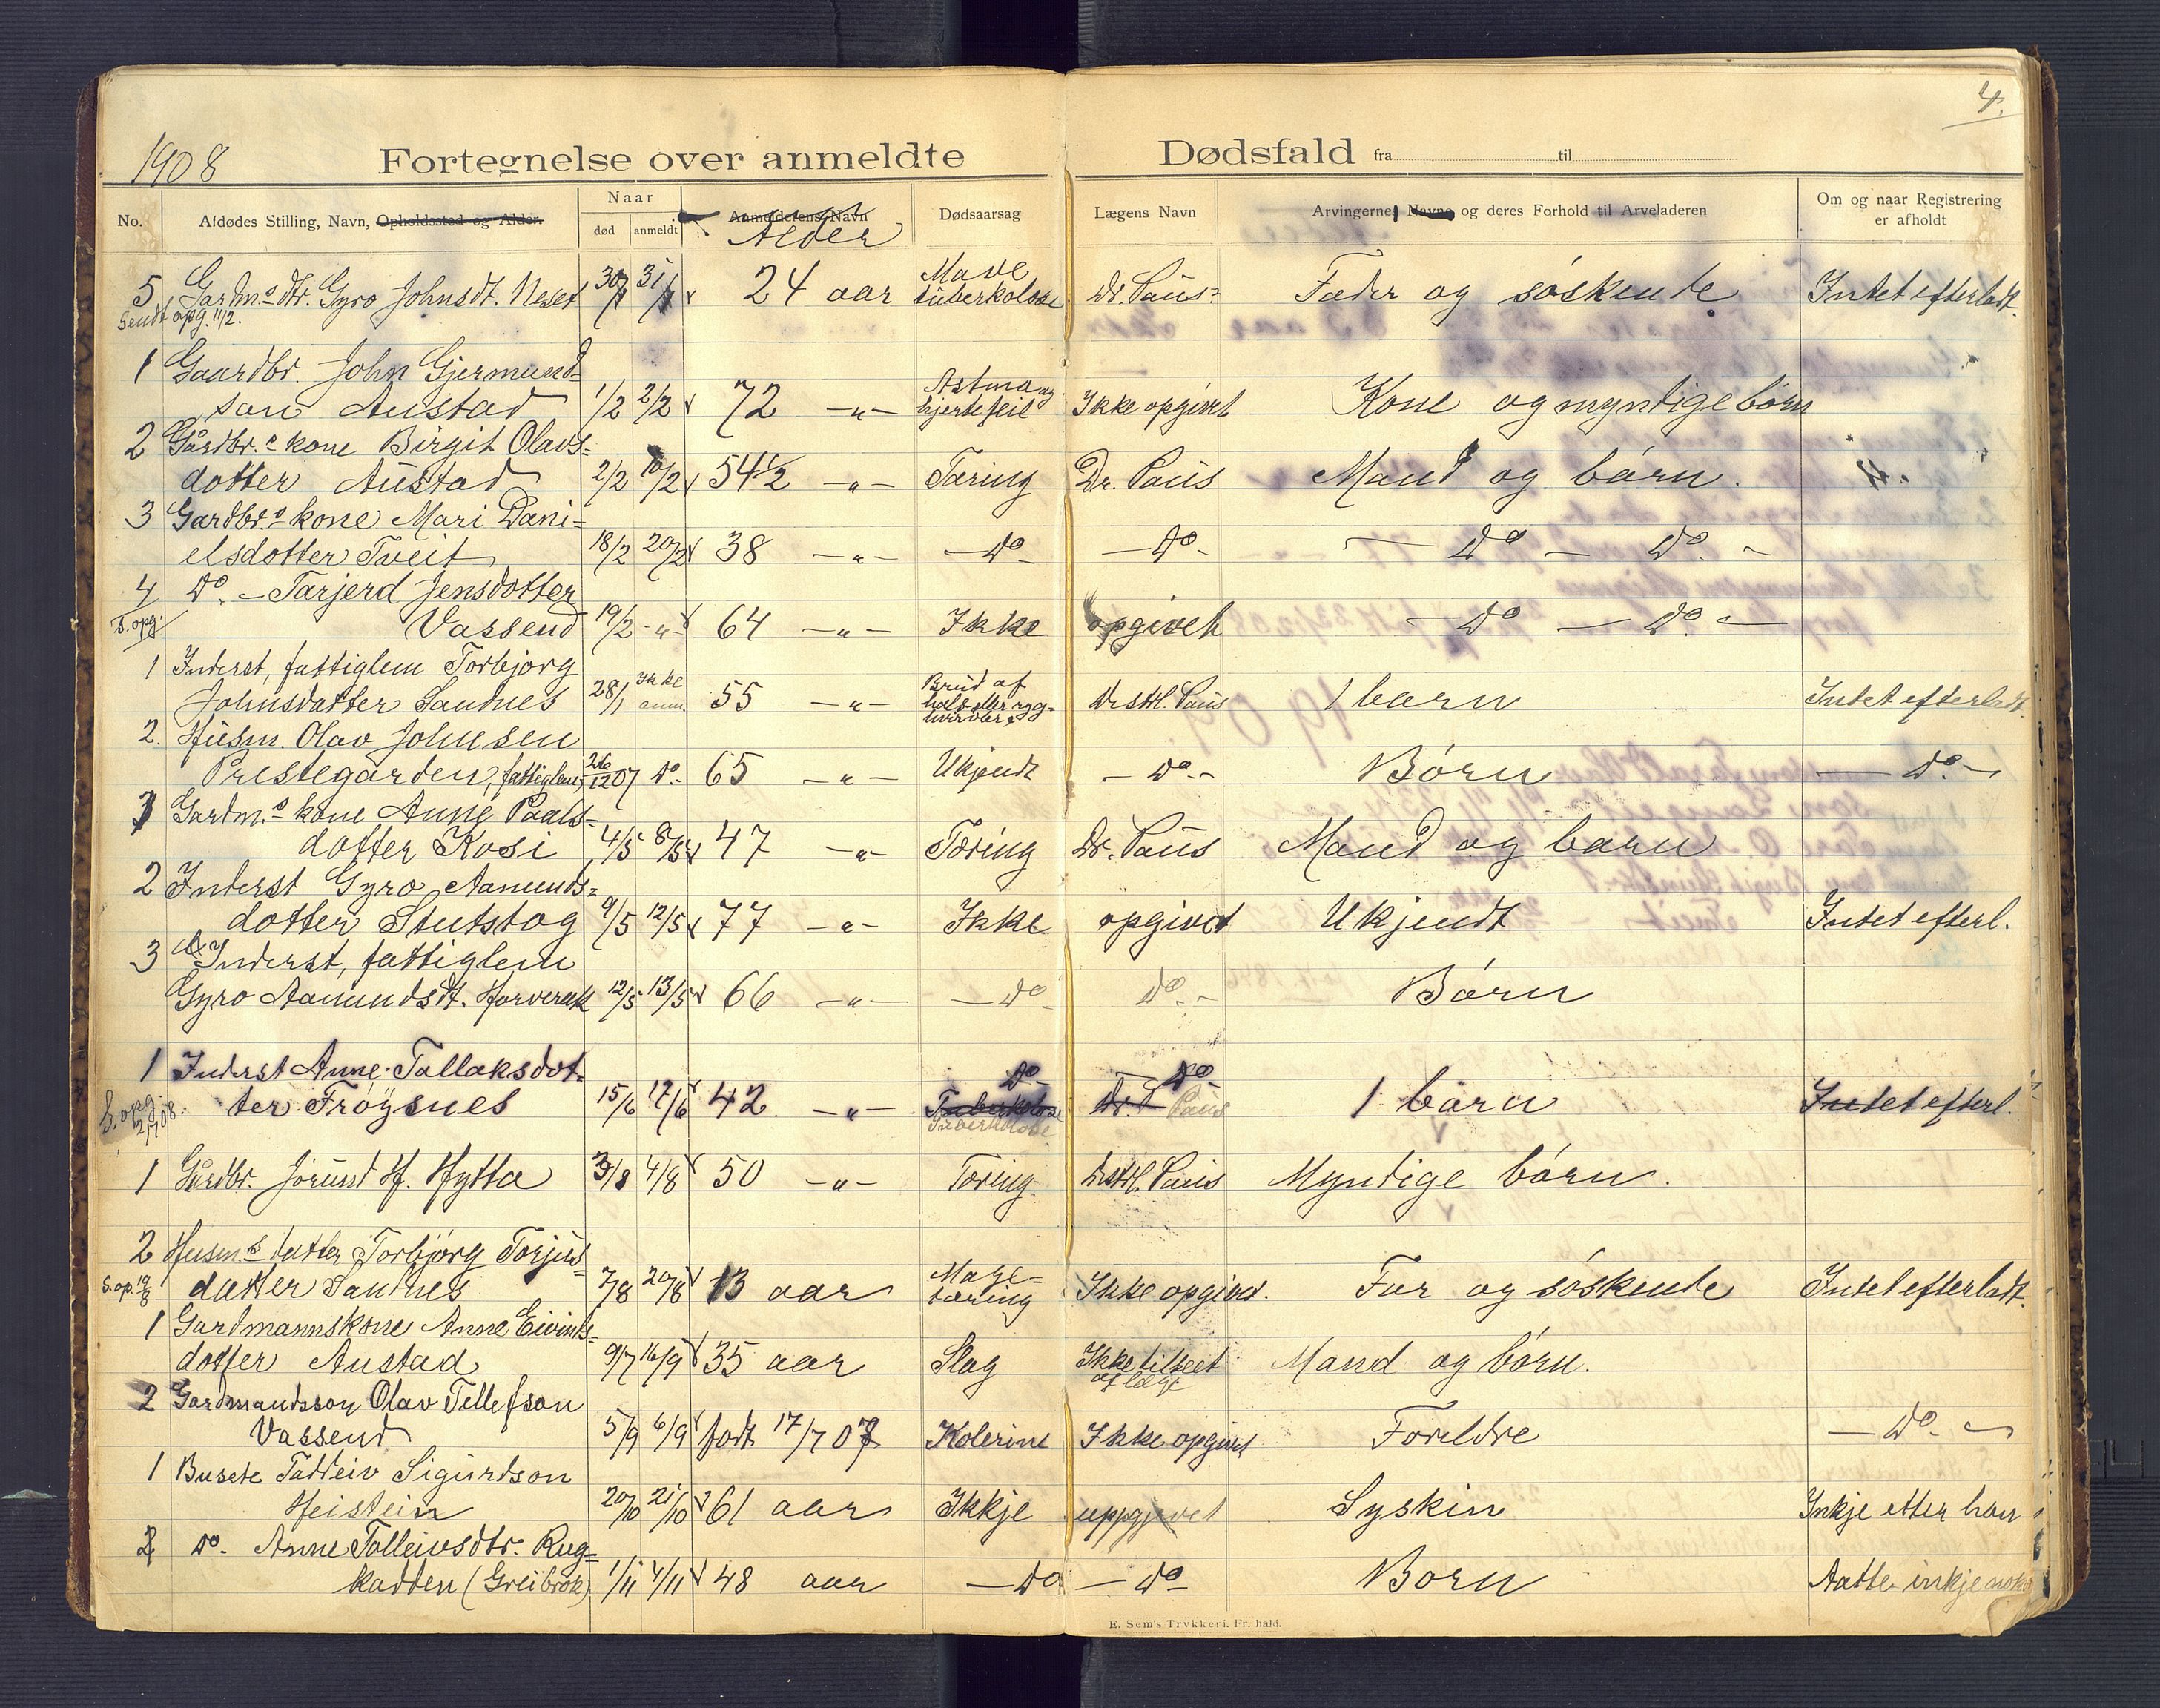 4.
1908
Fortegnelse over anmeldte Dødsfald fra til
No. Afdødes Stilling, Navn, Opholdssted og Alder. Naar død anmeldt Anmelderens Navn Alder Dødsaarsag Lægens Navn Arvingernes Navne og deres Forhold til Arveladeren Om og naar Registrering er afholdt
5 Gardm.s dtr. Gyro Johnsdt. Neset 30/1 31/1 24 aar Mave tuberkolose Dr. Paus Fader og søskende Intet efterladt.
Sendt opg. 11/2.
1 Gaardbr. John Gjermund-
son Austad 1/2 2/2 72 -"- Astma og hjertefeil Ikke opgivet Kone og myndige børn
2 Gårdbr.s kone Birgit Olavs-
dotter Austad 2/2 10/2 54 1/2 -"- Tæring Dr. Paus Mand og børn.
3 Gardbr.s kone Mari Dani-
elsdotter Tveit 18/2 20/2 38 -"- - do - - do - - do - do. -
4 do. - Tarjerd Jensdotter
S. opg. Vassend 19/2 -"- 64 -"- Ikke opgivet - do - do. -
1 Inderst, fattiglem Torbjørg
Johnsdatter Sandnes 28/1 ikke anm. 55 -"- Brud af hals eller ryg- hvirvler Dr. Paus 1 barn Intet efterladt.
2. Husm. Olav Johnsen
Prestegården, fattiglem, 12 07 do. 65 -"- Ukjendt - do. - Børn - do. -
1 Gardm.s kone Anne Paals-
dotter Kosi 4/5 8/5 47 -"- Tæring Dr. Paus Mand og barn
2 Inderst Gyro Aamunds-
dotter Stutstog 9/5 12/5 77 -"- Ikke opgivet Ukjendt Intet efterl.
3 Inderst, fattiglem
Gyro Aamundsdt. Horverak 12/5 13/5 66 -"- - do - do. - Børn
1 Inderst Anne Tallaksdot- do - do -
ter Frøysnes 15/6 17/6 42 -"- Tuberkolos Dr. Paus 1 barn Intet efterl.
S. opg. Tuberkolose
1 Gårdbr. Jørund H. Hytta 3/8 4/8 50 -"- Tæring. Paus Myndige børn.
2 Husm.s datter Torbjørg Torjus-
S. op. 19/8 datter Sandnes 7/8 20/8 13 aar Mave- tæring Ikke opgivet. Far og søskende Intet efterladt.
1 Gardmannskone Anne Eivinds-
dotter Austad 9/7 16/9 35 aar Slag Ikke tilseet af læge Mand og børn.
2 Gardmandsson Olav Tellefson
Vassend 5/9 6/9 født 17/7 07 Kolerine Ikke opgivet Foreldre - do. -
1 Busete Taddeiv Sigurdson
Heistein 20/10 21/10 61 aar Ikkje uppgjevet Syskin Inkje etter han
2 do. Anne Tolleivsdtr. Rug-
kadden (Greibrok) 1/11 4/11 48 aar - do - do - Born Aatte inkje noko
E. Sem's Trykkeri. Fr. hald.